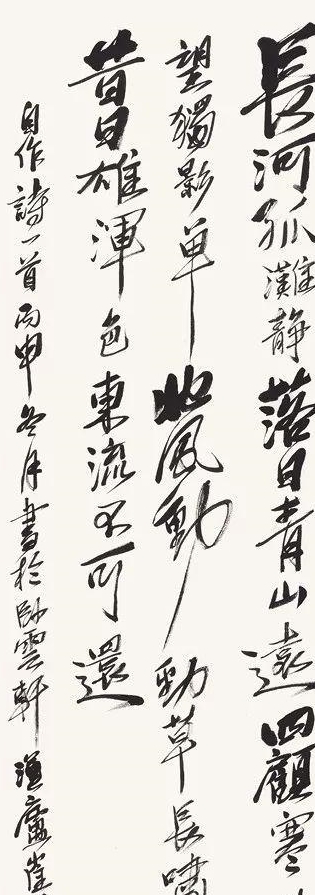 長河孤灘静落日青山遠四顧寒
望獨影單北風動勁草長嘯
昔日雄渾色東流不可還
自作詩一首丙申冬月書於卧雲軒廬崔